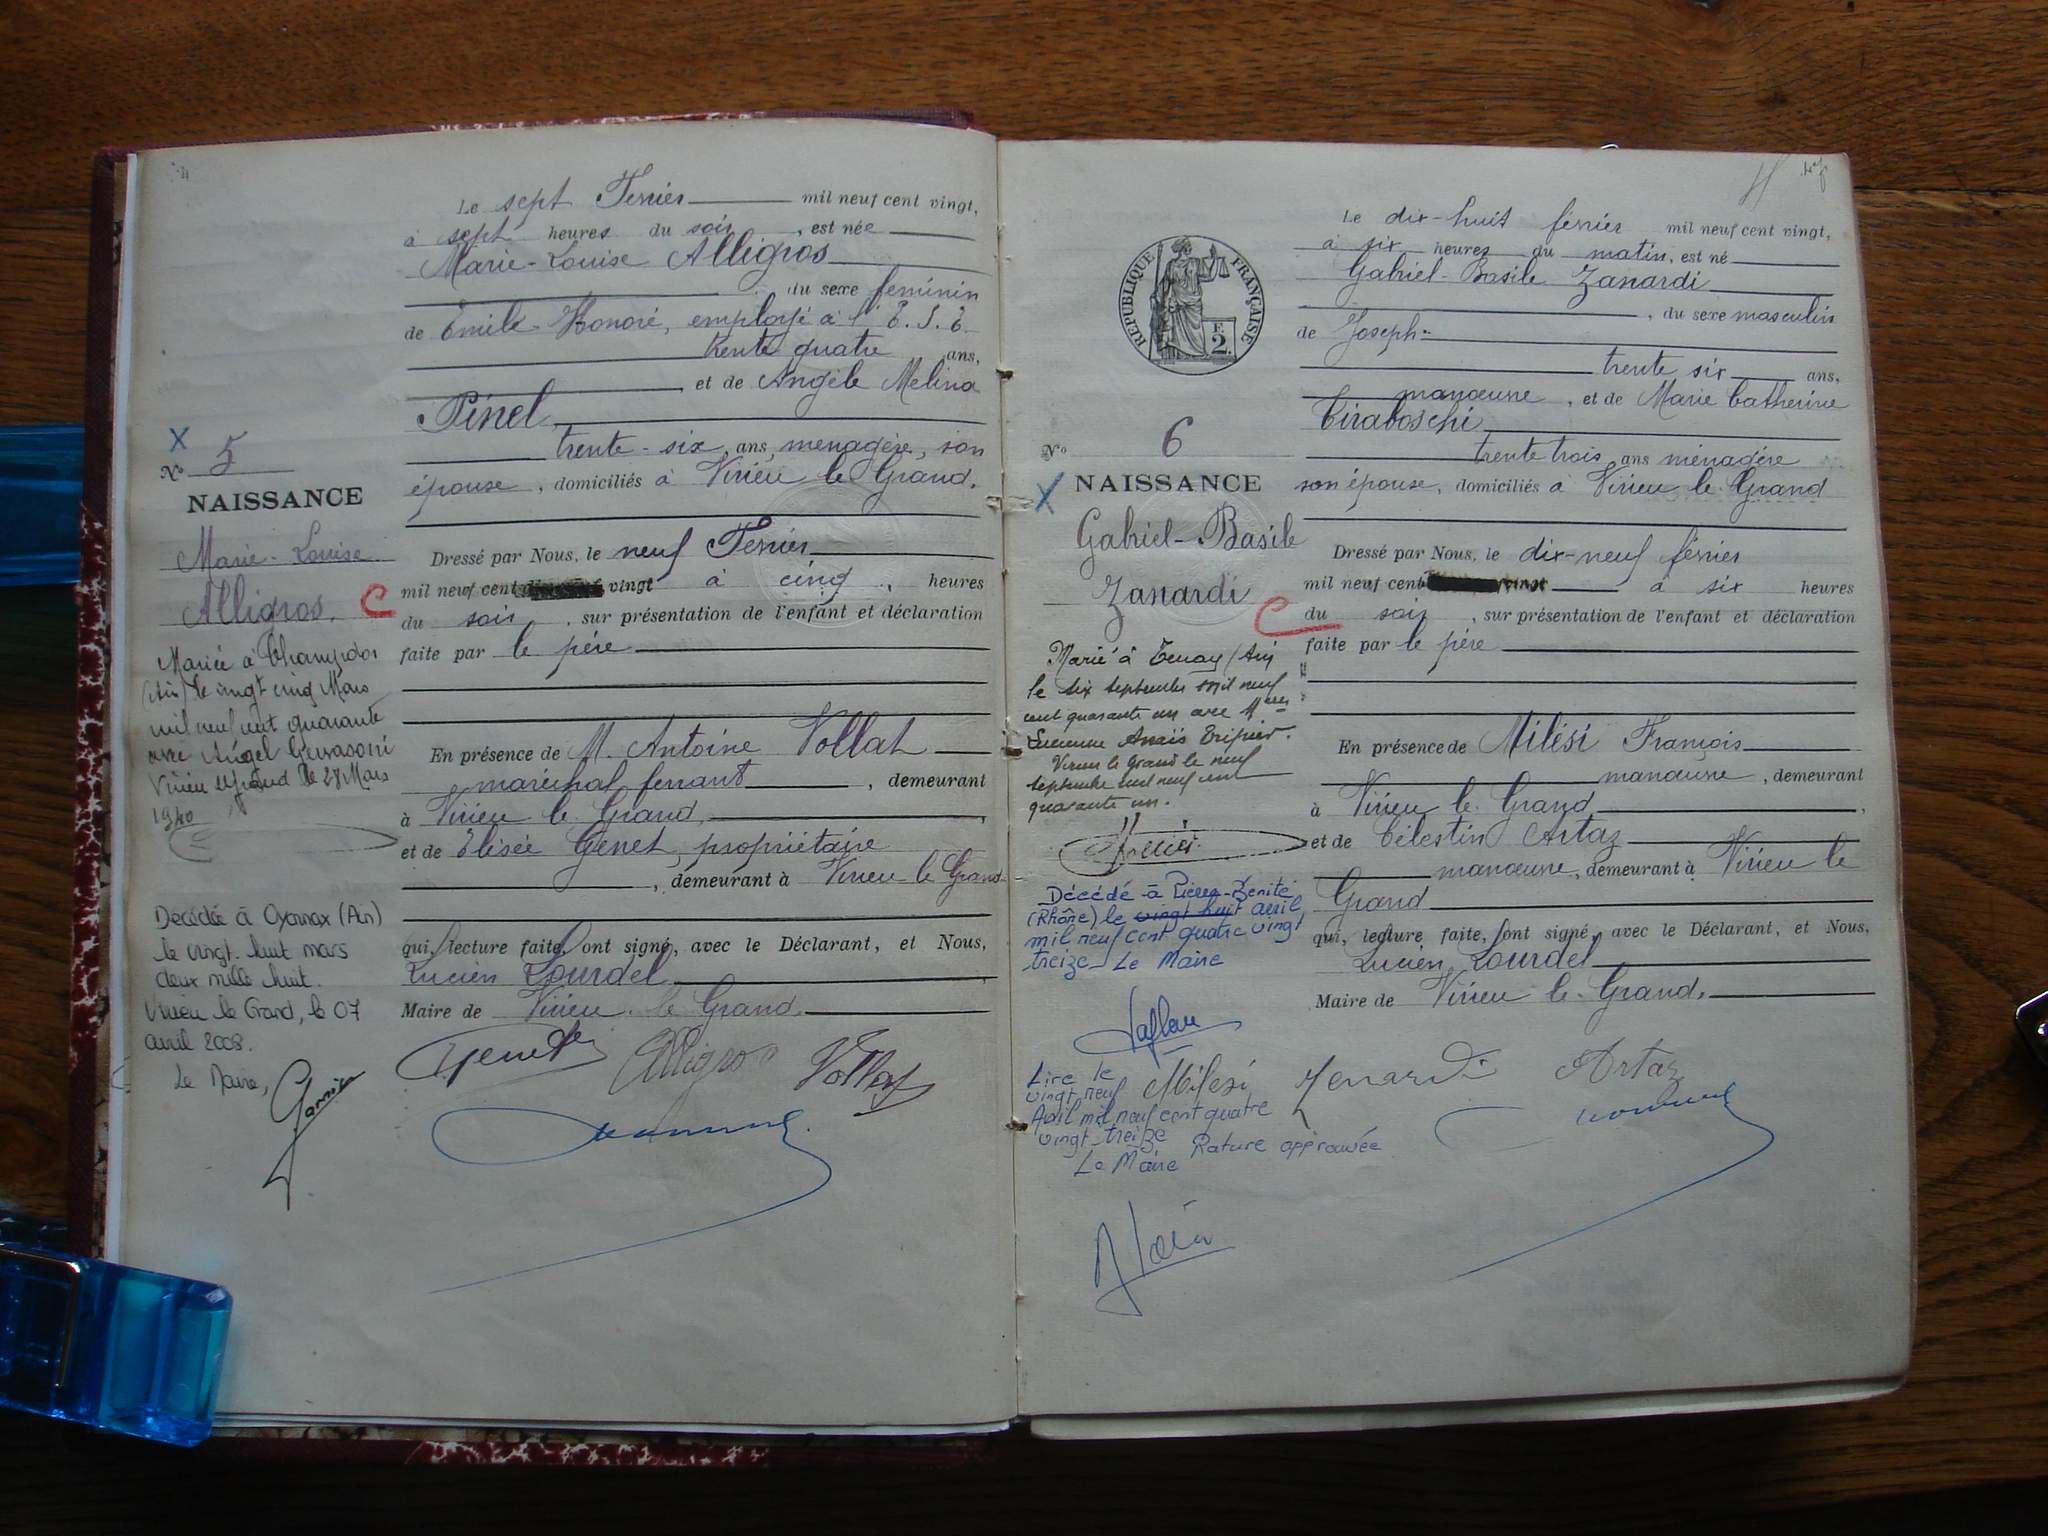 Le sept Ferrier mil neuf cent vingt,
à sept heures du soir, est née
Marie-Louise Alligros
du sexe feminin
de Emile-Honoré, employé à l'E. S. E.
trente quatre ans,
et de Angèle Melina
Pinel
trente-six ans, menagère, son
épouse, domiciliés à Virieu le Grand.
X
No 5
NAISSANCE
Marie-Louise
Alligros.
C
Dressé par Nous, le neuf Ferrier
mil neuf cent vingt à cinq heures
du soir, sur présentation de l'enfant et déclaration
faite par le père
Mariée à Champdor
(Ain) le vingt cinq Mars
mil neuf cent quarante
avec Angel Gervasoni
Virieu le Grand le 28 Mars
1940
En présence de M. Antoine Vollat
maréchal ferrant, demeurant
à Virieu le Grand,
et de Elisée Genet, propriétaire
, demeurant à Virieu le Grand
qui, lecture faite, ont signé, avec le Déclarant, et Nous,
Lucien Lourdel
Maire de Virieu le Grand.
Decédée à Oyonnax (Ain)
le vingt-huit mars
deux mille huit.
Virieu le Grand, le 07
avril 2008.
Le Maire,
Genet Alligros Vollat
RÉPUBLIQUE FRANÇAISE
F.
2.
Le dix-huit février mil neuf cent vingt,
à six heures du matin, est né
Gabriel-Basile Zanardi
, du sexe masculin
de Joseph
trente six ans,
manœuvre, et de Marie Catherine
Tiraboschi
trente trois ans ménagère
son épouse, domiciliés à Virieu le Grand
No 6
X NAISSANCE
Gabriel-Basile
Zanardi
C
Dressé par Nous, le dix-neuf février
mil neuf cent vingt à six heures
du soir, sur présentation de l'enfant et déclaration
faite par le père
Marié à Tenay (Ain)
le six septembre mil neuf
cent quarante un avec
Lucienne Anaïs Tripier.
Virieu le Grand le neuf
septembre mil neuf cent
quarante un.
En présence de Milési François
manœuvre, demeurant
à Virieu le Grand,
et de Célestin Artaz
manœuvre, demeurant à Virieu le
Grand
qui, lecture faite, ont signé, avec le Déclarant, et Nous,
Lucien Lourdel
Maire de Virieu le Grand.
Décédé à Pierre-Bénite
(Rhône) le vingt huit avril
mil neuf cent quatre vingt
treize Le Maire
Lire le
vingt neuf
Avril mil neuf cent quatre
vingt treize
Le Maire Rature approuvée
Milesi Zenardi Artaz